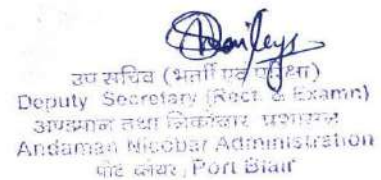 उप सचिव (भर्ती एवं परीक्षा)
Deputy Secretary (Rectt. & Examn)
अण्डमान तथा निकोबार प्रशासन
Andaman Nicobar Administration
पोर्ट ब्लेयर, Port Blair